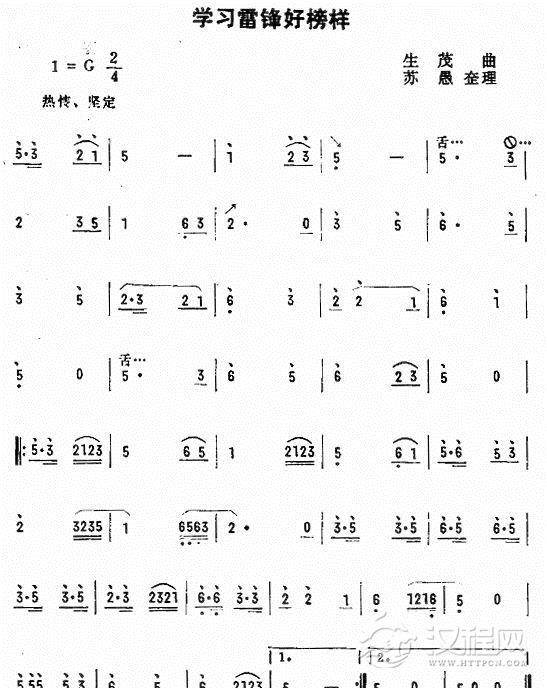 学习雷锋好榜样
1 = G 2/4
生 茂 曲
苏 愚 整理
热情、坚定
5·3 2 1 | 5 — | 1 2 3 | 5 — | 5· 3 |
舌… ⃠…
2 3 5 | 1 6 3 | 2· 0 | 3 5 | 6· 5 |
3 5 | 2·3 2 1 | 6 3 | 2 2 1 | 6 1 |
舌…
5 0 | 5· 3 | 6 5 | 6 2 3 | 5 0 |
‖: 5·3 2123 | 5 6 5 | 1 2123 | 5 6 1 | 5·6 5 3 |
2 3235 | 1 6563 | 2· 0 | 3·5 3·5 | 6·5 6·5 |
3·5 3·5 | 2·3 2321 | 6·6 3·3 | 2 2 1 | 6 1216 | 5 0
1. 2.
汉程网
WWW.HTTPCN.COM